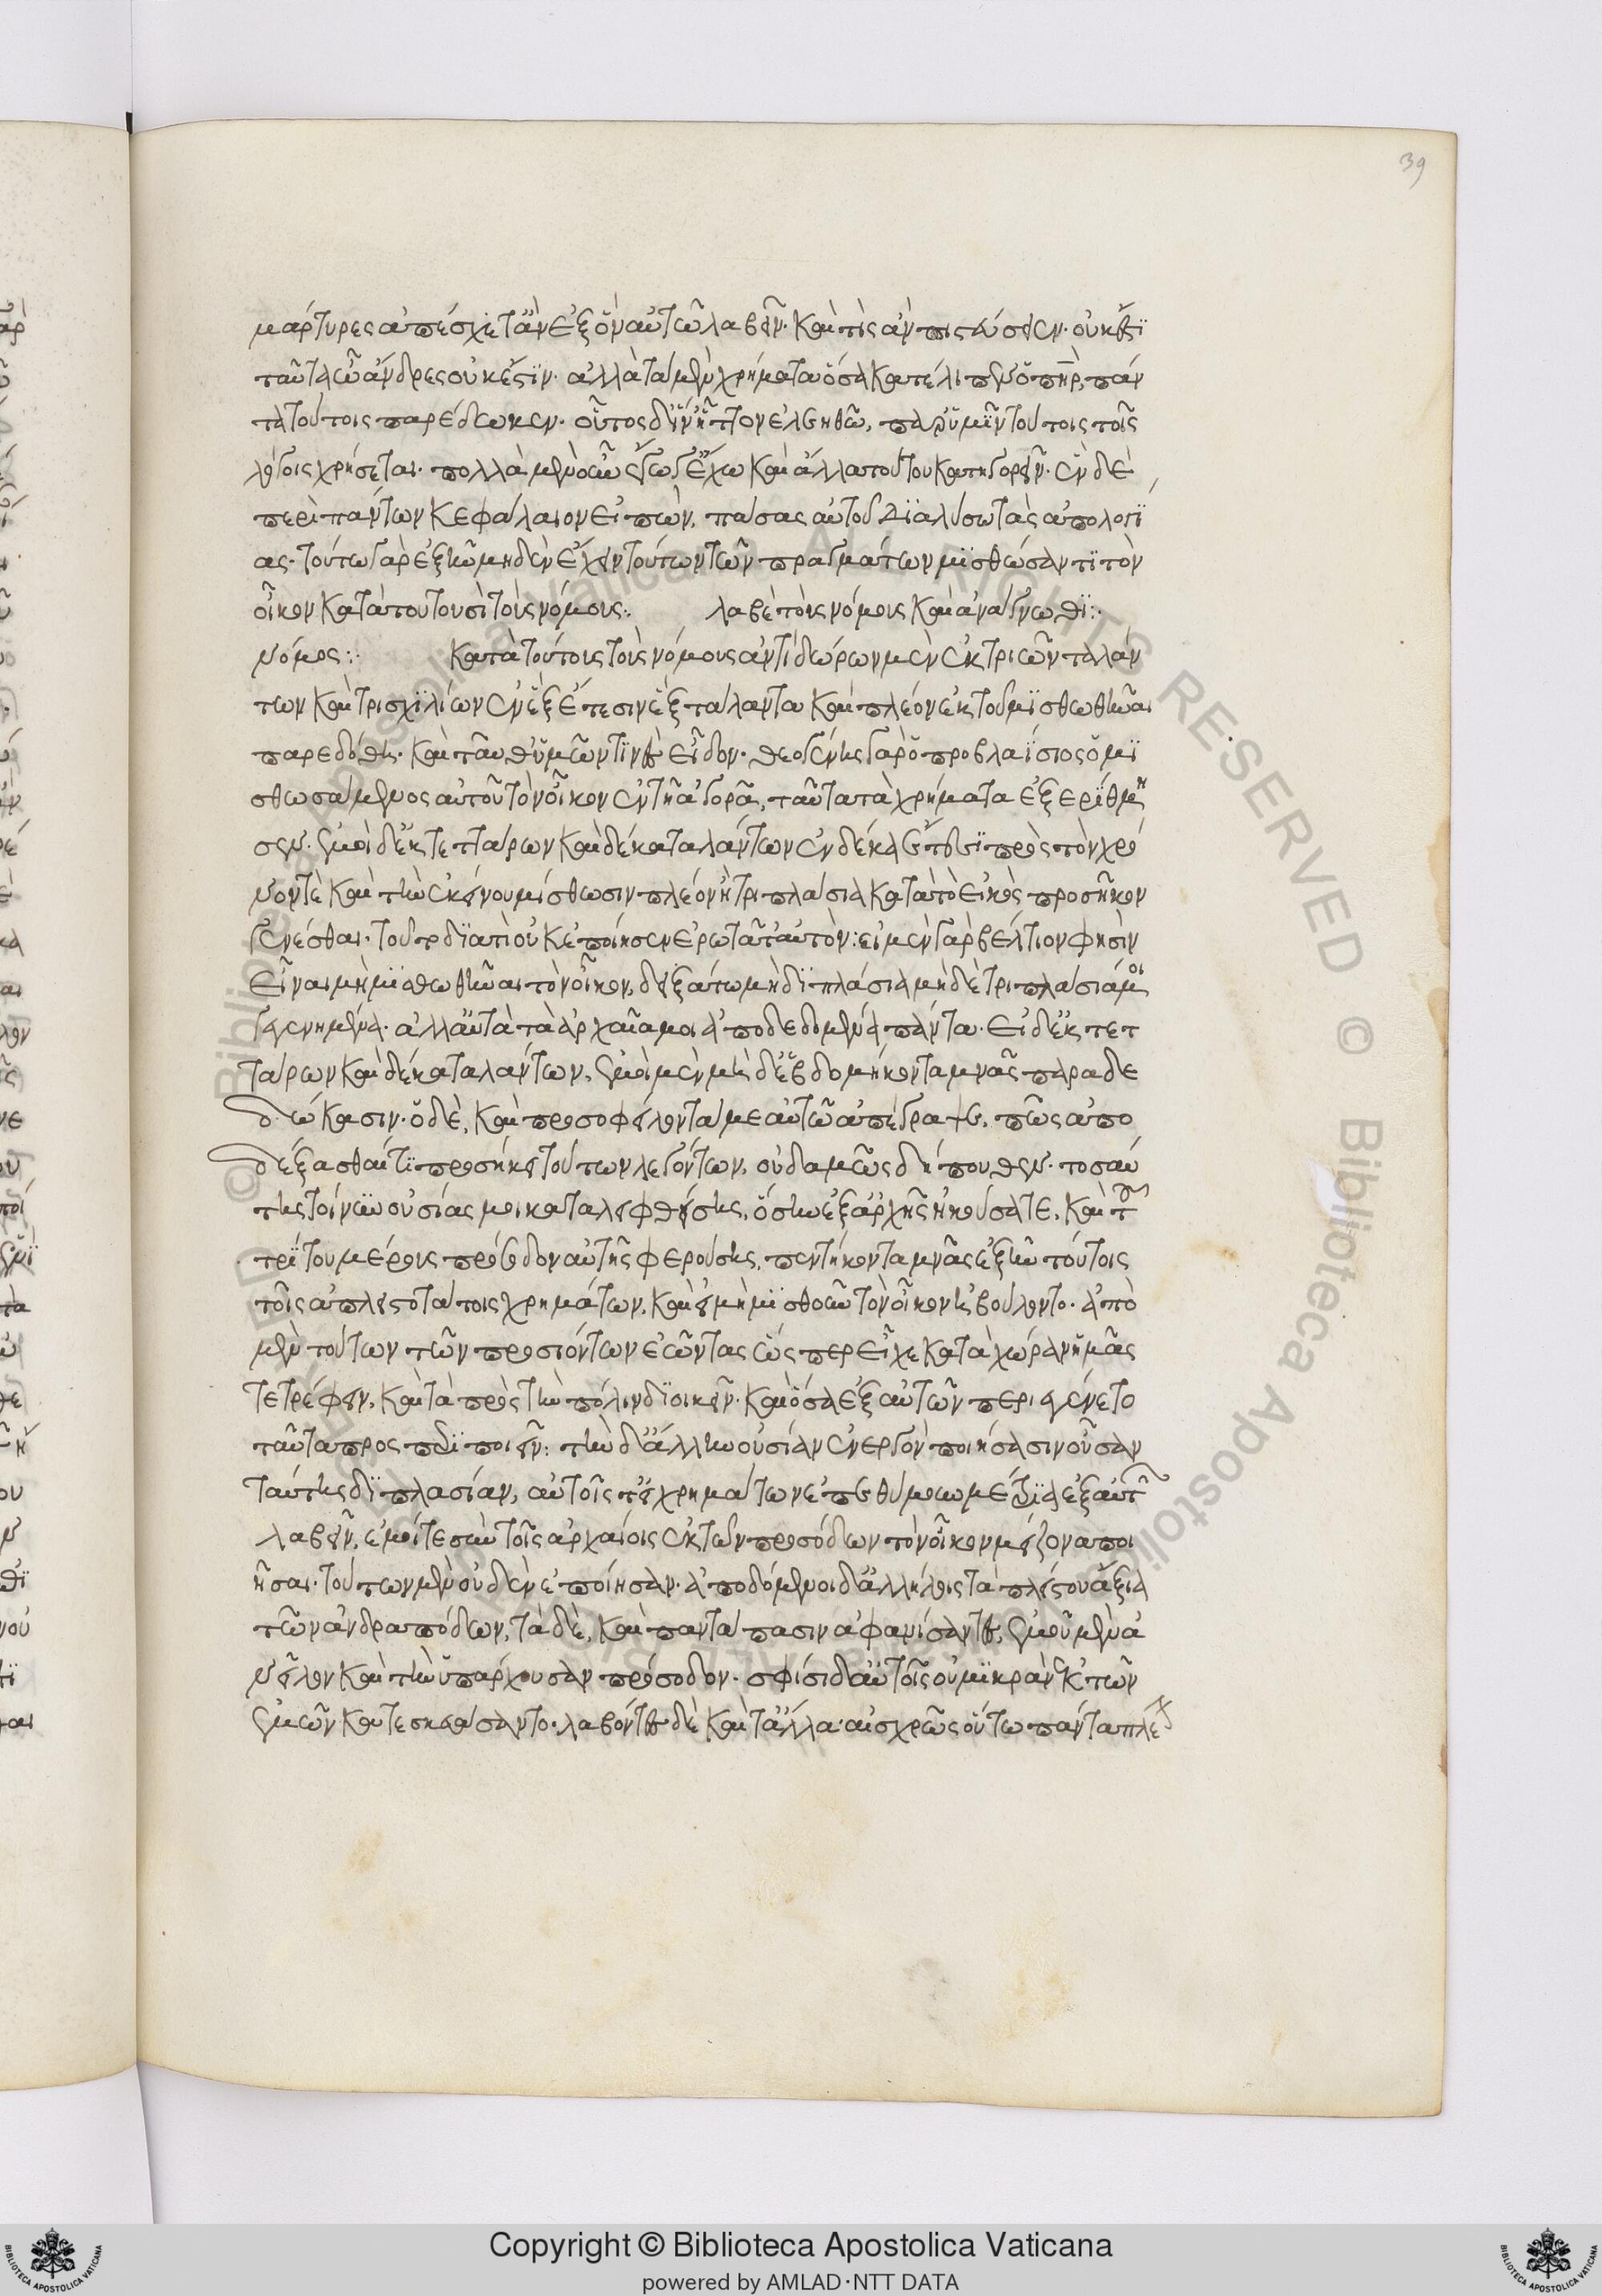 39
μάρτυρες ἀπέσχετ' ἂν ἐξὸν αὐτῶ λαβεῖν. καὶ τίς ἂν πιστεύσειεν. οὐκ ἔστι
ταῦτα ὦ ἄνδρες οὐκ ἔστιν. ἀλλὰ τὰ μὲν χρήματα ὅσα κατέλιπεν ὁ πηρ, πάν
τα τούτοις παρέδωκεν. οὗτος δ' ἵν' ἧττον ἐλεηθῶ, παρ' ὑμῖν τούτοις τοῖς
λόγοις χρήσεται. πολλὰ μὲν οὖν ἔγωγ' ἔχω καὶ ἄλλα τούτου κατηγορεῖν. ἓν δὲ
περὶ πάντων κεφάλαιον εἰπὼν, πάσας αὐτοῦ διαλύσω τὰς ἀπολογί
ας. τούτω γὰρ ἐξῆν μηδὲν ἔχειν τούτων τῶν πραγμάτων μισθώσαντι τὸν
οἶκον κατὰ τουτουσὶ τοὺς νόμους: λαβὲ τοὺς νόμους καὶ ἀνάγνωθι:
νόμος: κατὰ τούτους τοὺς νόμους ἀντιδώρω μὲν ἐκ τριῶν ταλάν
των καὶ τρισχιλίων ἐν ἓξ ἔτεσιν ἓξ τάλαντα καὶ πλέον ἐκ τοῦ μισθωθῆναι
παρεδόθη. καὶ ταῦθ' ὑμῶν τινὲς εἶδον. θεογένης γὰρ ὁ προβαλίσιος ὁ μι
σθωσάμενος αὐτοῦ τὸν οἶκον ἐν τῆ ἀγορᾶ, ταῦτα τὰ χρήματα ἐξερίθμη
σεν. ἐμοὶ δ' ἐκ τεττάρων καὶ δέκα ταλάντων ἐν δέκα ἔτεσι πρὸς τὸν χρό
νον τὲ καὶ τὴν ἐκείνου μίσθωσιν πλέον ἢ τριπλάσια κατὰ τὸ εἰκὸς προσῆκον
γενέσθαι. τοῦτο διατί οὐκ ἐποίησεν ἐρωτᾶτ' αὐτὸν: εἰ μὲν γὰρ βέλτιον φησὶν
εἶναι μὴ μισθωθῆναι τὸν οἶκον, δειξάτω μὴ διπλάσια μὴ δὲ τριπλάσιά μοι
γεγενημένα. ἀλλ' αὐτὰ τὰ ἀρχαῖα μοι ἀποδεδομένα πάντα. εἰ δ' ἐκ τετ
τάρων καὶ δέκα ταλάντων, ἐμοὶ μὲν μὴ δ' ἑβδομήκοντα μνᾶς παραδε
δώκασιν. ὁ δὲ, καὶ προσοφείλοντά με αὐτῶ ἀπέγραψε, πῶς ἀπο
δέξασθαί τι προσήκει τούτων λεγόντων, οὐδαμῶς δήπουθεν. τοσαύ
της τοίνυν οὐσίας μοι καταλειφθείσης, ὅσην ἐξ ἀρχῆς ἠκούσατε, καὶ τοῦ
τρίτου μέρους πρόσοδον αὐτῆς φερούσης, πεντήκοντα μνᾶς ἐξὸν τούτοις
τοῖς ἀπληστοτάτοις χρημάτων, καὶ εἰ μὴ μισθοῦν τὸν οἶκον ἐβούλοντο. ἀπὸ
μὲν τούτων τῶν προσιόντων ἐῶντας ὥσπερ εἶχε κατὰ χώραν ἡμᾶς
τε τρέφειν, καὶ τὰ πρὸς τὴν πόλιν διοικεῖν. καὶ ὅσα ἐξ αὐτῶν περιεγένετο
ταῦτα προσποιεῖν: τὴν δ' ἄλλην οὐσίαν ἐνεργὸν ποιήσασιν οὖσαν
ταύτης διπλασίαν, αὐτοῖς τ' εἰ χρημάτων ἐπεθύμουν μέτρια ἐξ αὐτῶν
λαβεῖν, ἐμοί τε σὺν τοῖς ἀρχαίοις ἐκ τῶν προσόδων τὸν οἶκον μείζονα ποι
ῆσαι. τούτων μὲν οὐδὲν ἐποίησαν. ἀποδόμενοι δ' ἀλλήλοις τὰ πλείστου ἄξια
τῶν ἀνδραπόδων, τὰ δὲ, καὶ παντάπασιν ἀφανίσαντες, ἐμοῦ μὲν ἀ
νεῖλον καὶ τὴν ὑπάρχουσαν πρόσοδον. σφίσι δ' αὐτοῖς οὐ μικρὰν ἐκ τῶν
ἐμῶν κατεσκευάσαντο. λαβόντες δὲ καὶ τἄλλα αἰσχρῶς οὕτω πάντα πλέ
Copyright © Biblioteca Apostolica Vaticana
powered by AMLAD·NTT DATA